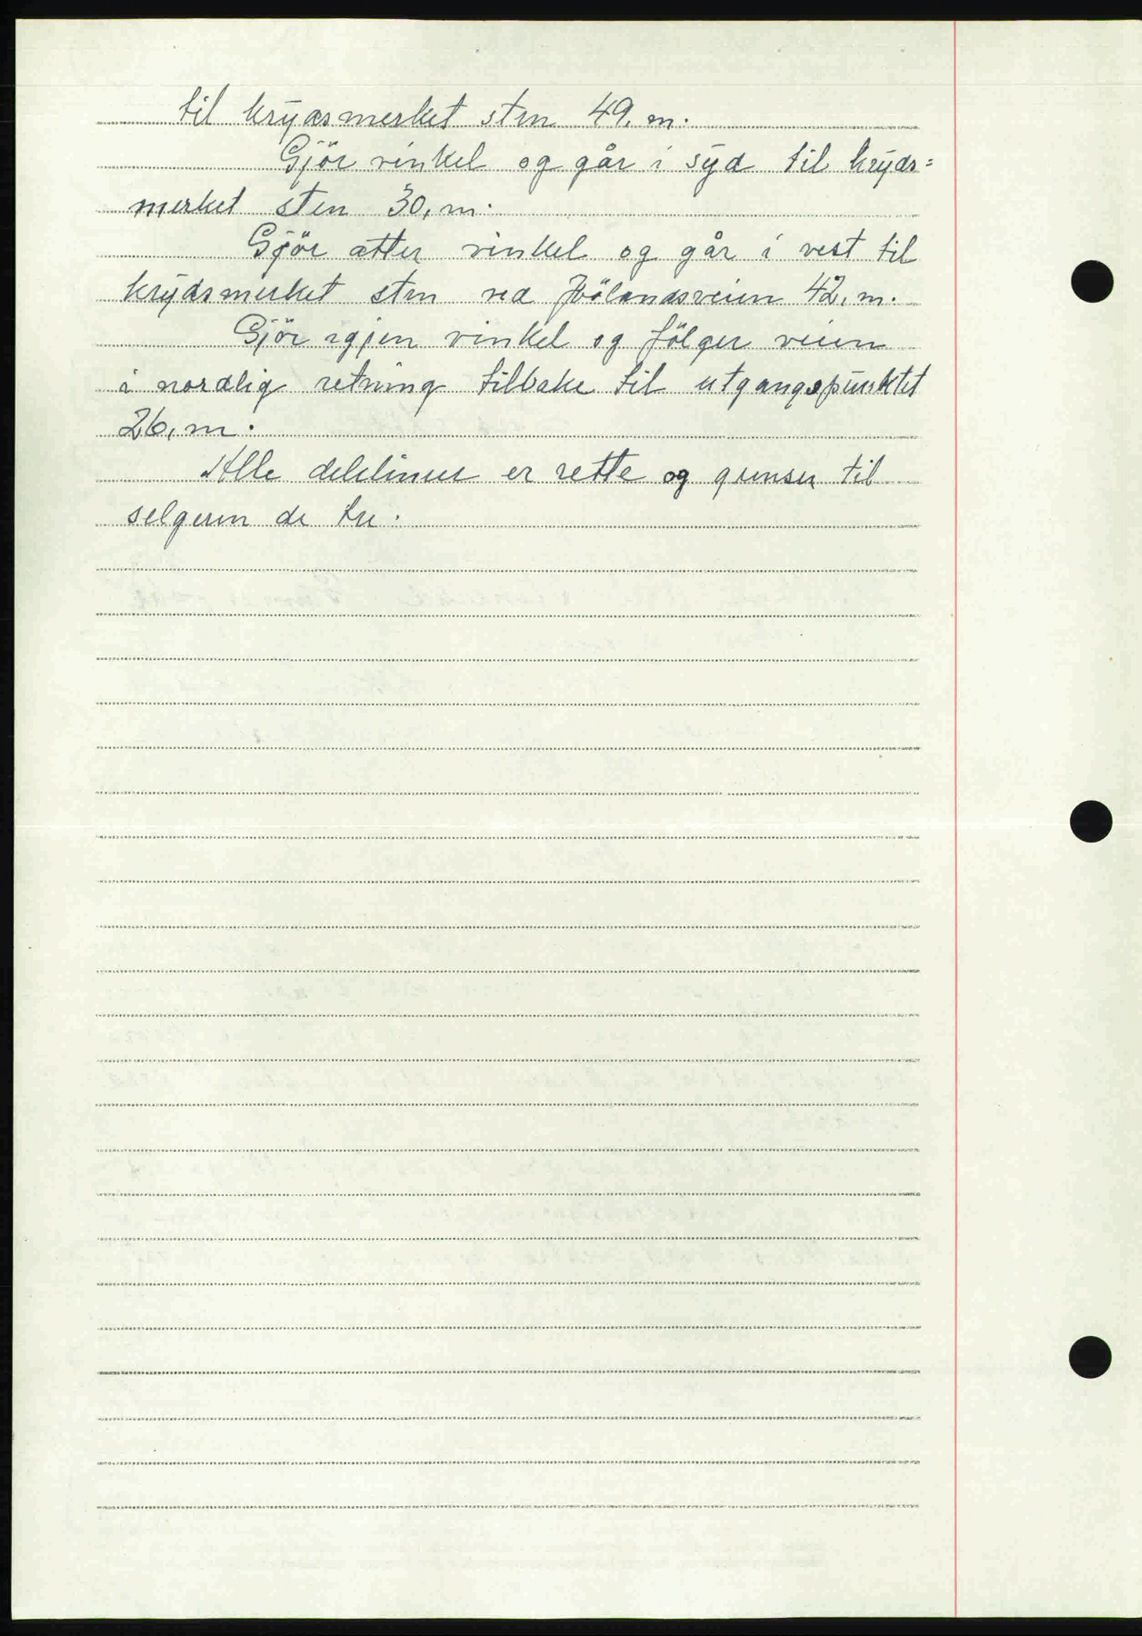 til krydsmerket sten 49, m.
Gjör vinkel og går i syd til kryds=
merket sten 30, m.
Gjör atter vinkel og går i vest til
krydsmerket sten ved Hölandsveien 42, m.
Gjör igjen vinkel og fölger veien
i nordlig retning tilbake til utgangspunktet
26, m.
Alle delelinier er rette og grenser til
selgeren de tre.